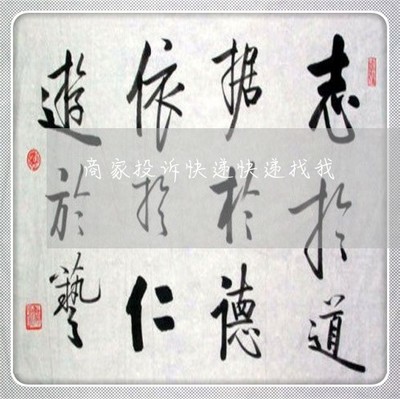 志於道
据於德
依於仁
遊於藝
商家投诉快递快递找我